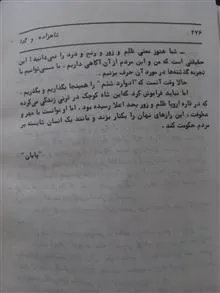 ۲۷۶ شاهزاده و گدا
ـ شما هنوز معنی ظلم و زور و رنج و درد را نمی‌دانید! این
حقیقتی است که من و این مردم از آن آگاهی داریم. ما می‌توانیم با
تجربه گذشته‌ها در مورد آن حرف بزنیم.
حالا وقت آنست که "ادوارد ششم" را همینجا بگذاریم و بگذریم.
اما نباید فراموش کرد که این شاه کوچک در قرنی زندگی می‌کرده
که در قاره اروپا ظلم و زور بحد اعلا رسیده بود. اما او توانست با مهر و
عطوفت، این رازهای نهان را بکنار بزند و مانند یک انسان شایسته بر
مردم حکومت کند.
"پایان"